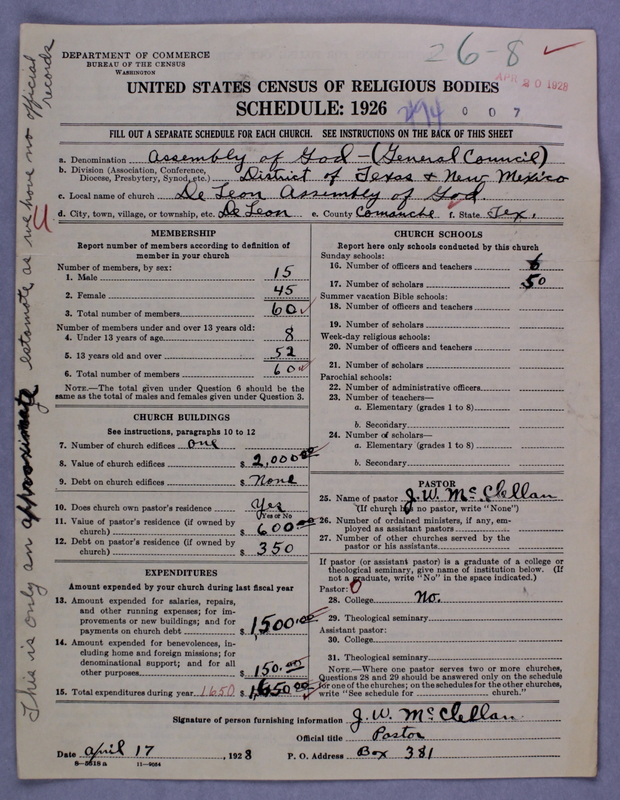 This is only an approximate estamate as we have no official records
26-8
APR 20 1928
294 0 0 7
DEPARTMENT OF COMMERCE
BUREAU OF THE CENSUS
WASHINGTON
UNITED STATES CENSUS OF RELIGIOUS BODIES
SCHEDULE: 1926
FILL OUT A SEPARATE SCHEDULE FOR EACH CHURCH. SEE INSTRUCTIONS ON THE BACK OF THIS SHEET
a. Denomination Assembly of God - (General Council)
b. Division (Association, Conference, Diocese, Presbytery, Synod, etc.) District of Texas & New Mexico
c. Local name of church De Leon Assembly of God.
4
d. City, town, village, or township, etc. De Leon e. County Comanche f. State Tex.
MEMBERSHIP
Report number of members according to definition of
member in your church
Number of members, by sex:
1. Male 15
2. Female 45
3. Total number of members 60
Number of members under and over 13 years old:
4. Under 13 years of age 8
5. 13 years old and over 52
6. Total number of members 60
NOTE.—The total given under Question 6 should be the
same as the total of males and females given under Question 3.
CHURCH BUILDINGS
See instructions, paragraphs 10 to 12
7. Number of church edifices one
8. Value of church edifices $ 2,000.00
9. Debt on church edifices $ None
10. Does church own pastor's residence? Yes
(Yes or No)
11. Value of pastor's residence (if owned by
church) $ 600.00
12. Debt on pastor's residence (if owned by
church) $ 350
EXPENDITURES
Amount expended by your church during last fiscal year
13. Amount expended for salaries, repairs,
and other running expenses; for im-
provements or new buildings; and for
payments on church debt $ 1500.00
14. Amount expended for benevolences, in-
cluding home and foreign missions; for
denominational support; and for all
other purposes $ 150.00
15. Total expenditures during year 1650 $ 1650.00
CHURCH SCHOOLS
Report here only schools conducted by this church
Sunday schools:
16. Number of officers and teachers 6
17. Number of scholars 50
Summer vacation Bible schools:
18. Number of officers and teachers
19. Number of scholars
Week-day religious schools:
20. Number of officers and teachers
21. Number of scholars
Parochial schools:
22. Number of administrative officers
23. Number of teachers—
a. Elementary (grades 1 to 8)
b. Secondary
24. Number of scholars—
a. Elementary (grades 1 to 8)
b. Secondary
PASTOR
25. Name of pastor J. W. McClellan
(If church has no pastor, write "None")
26. Number of ordained ministers, if any, em-
ployed as assistant pastors
27. Number of other churches served by the
pastor or his assistants
If pastor (or assistant pastor) is a graduate of a college or
theological seminary, give name of institution below. (If
not a graduate, write "No" in the space indicated.)
Pastor: 0
28. College No.
29. Theological seminary
Assistant pastor:
30. College
31. Theological seminary
NOTE.—Where one pastor serves two or more churches,
Questions 28 and 29 should be answered only on the schedule
for one of the churches; on the schedules for the other churches,
write "See schedule for church."
Signature of person furnishing information J. W. McClellan
Official title Pastor
Date April 17, 1928 P. O. Address Box 381
8—5518 a 11—9054